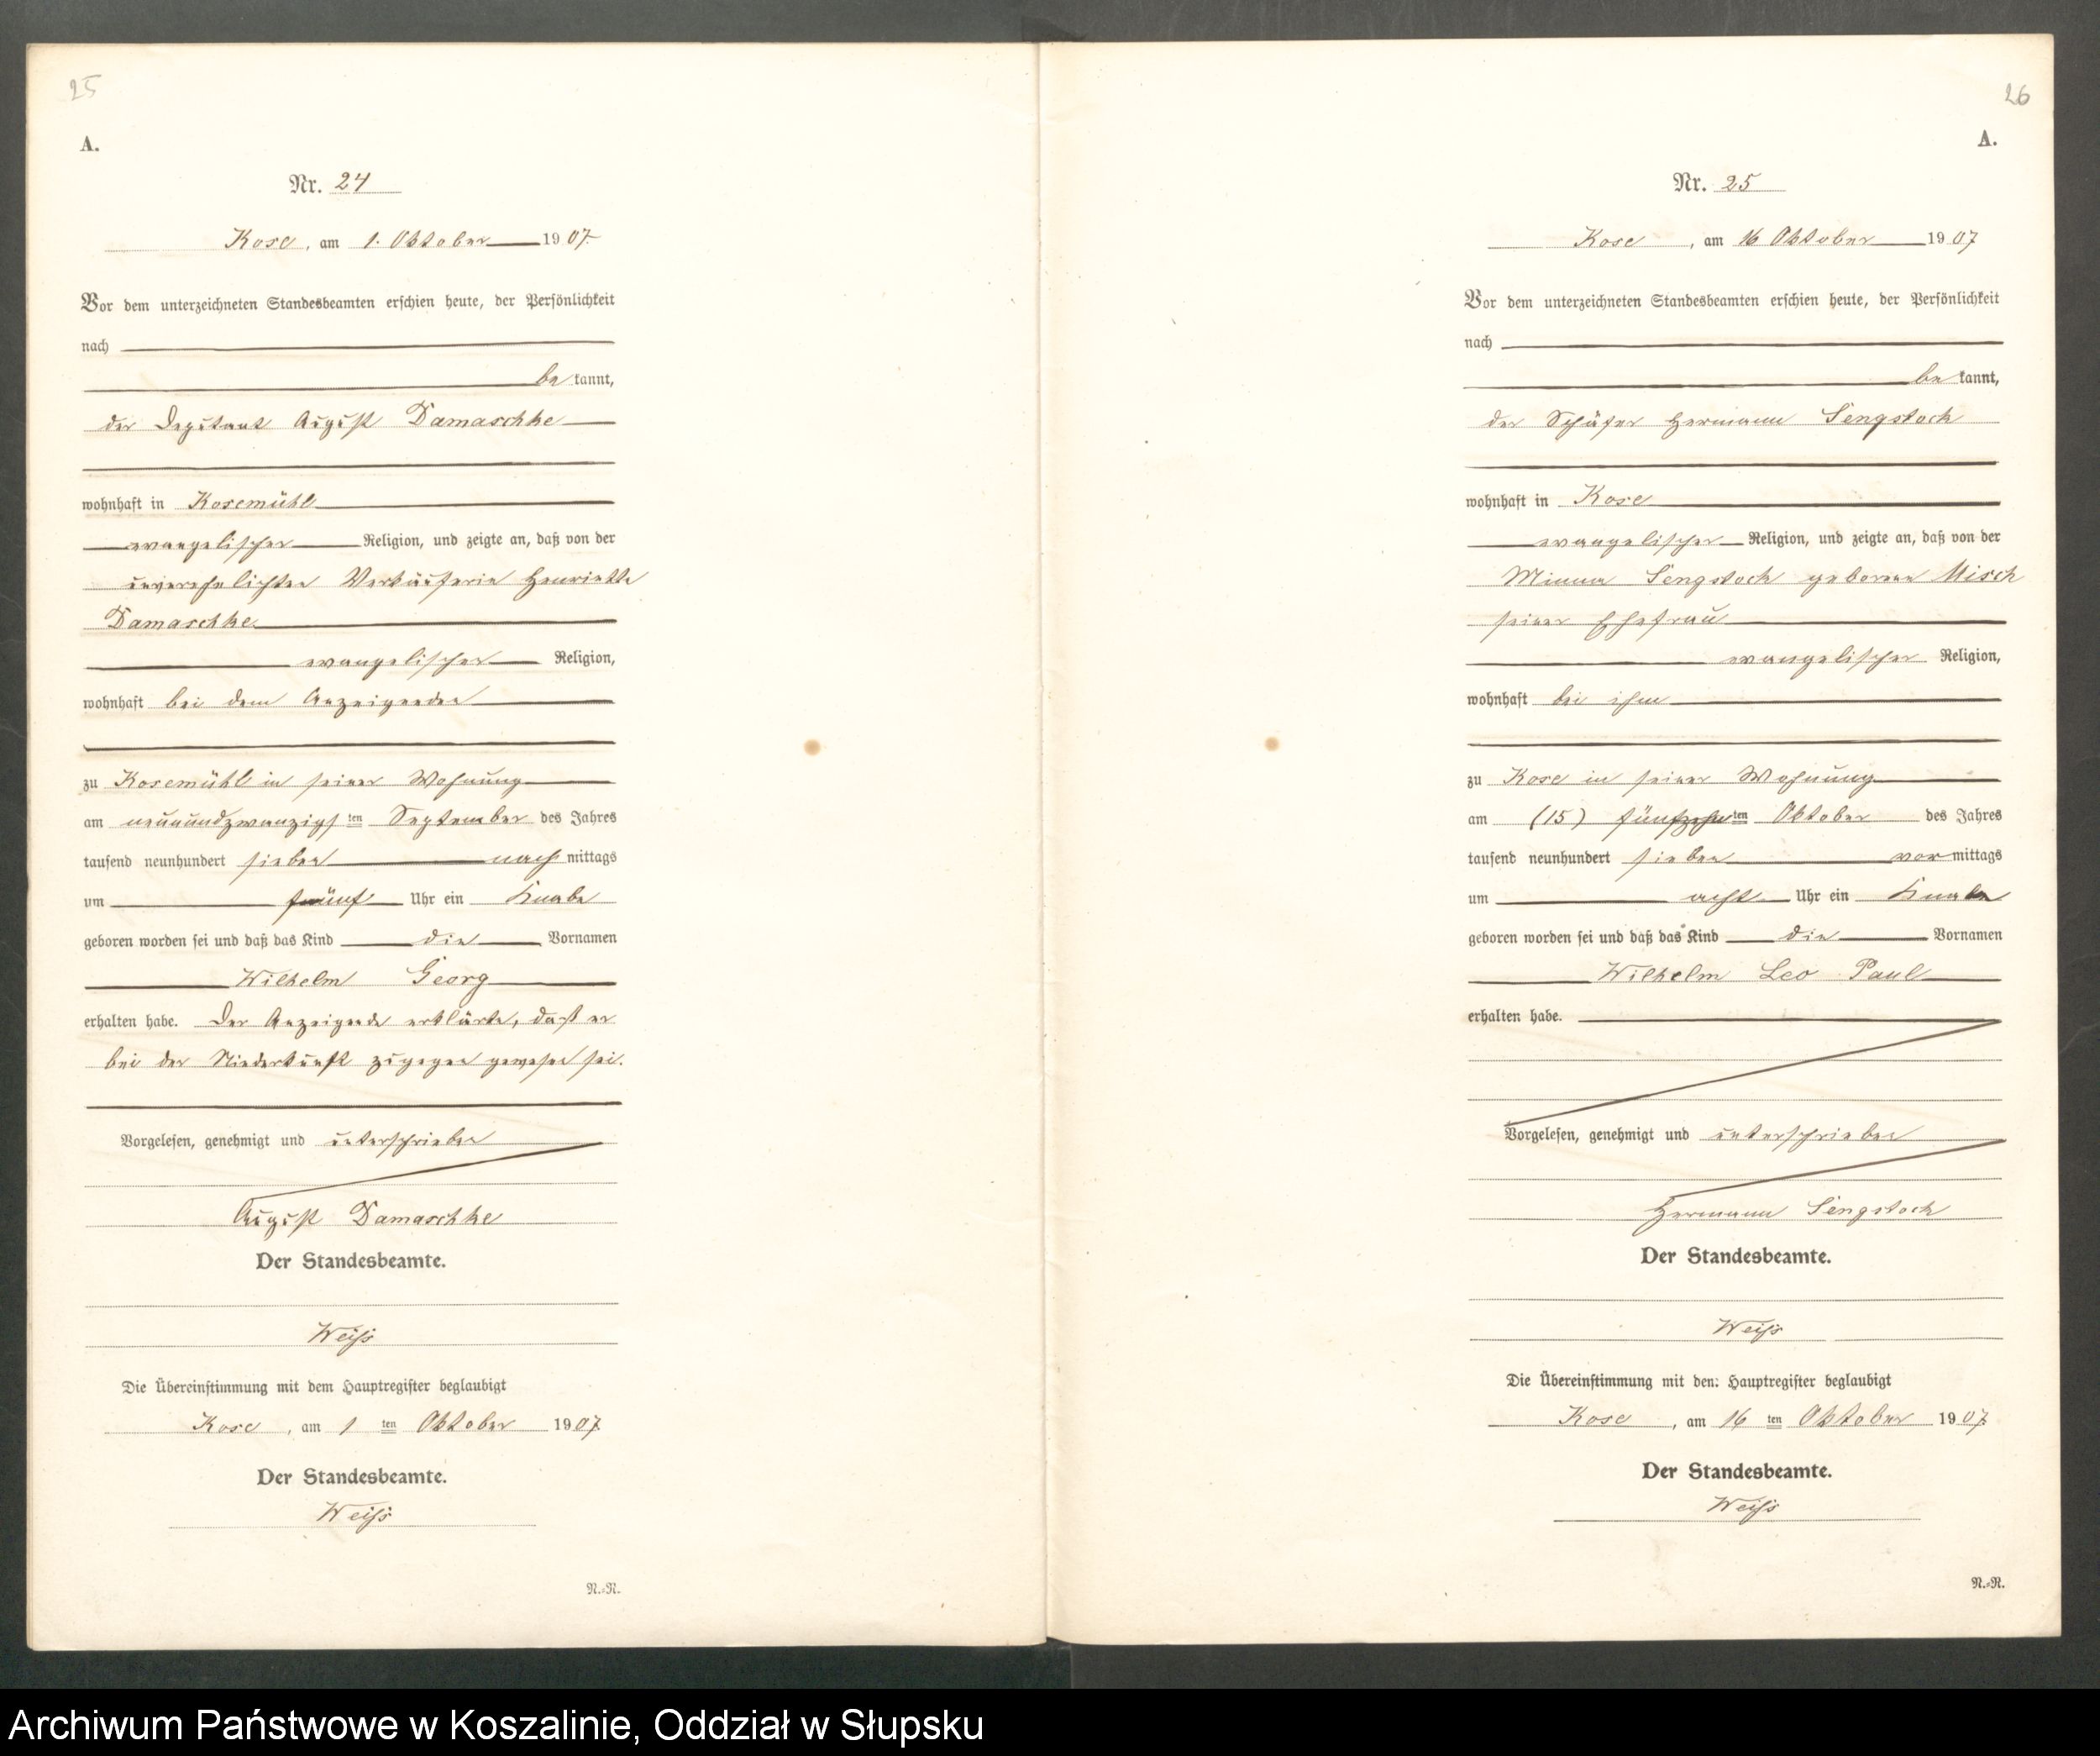 25
A.
Nr. 24
Kose, am 1. Oktober 1907
Vor dem unterzeichneten Standesbeamten erschien heute, der Persönlichkeit
nach
bekannt,
der Deputant August Damaschke
wohnhaft in Kosemühl
evangelischer Religion, und zeigte an, daß von der
unverehelichten Verkäuferin Henriette
Damaschke
evangelischer Religion,
wohnhaft bei dem Anzeigenden
zu Kosemühl in seiner Wohnung
am neunundzwanzigsten September des Jahres
tausend neunhundert sieben nachmittags
um fünf Uhr ein Knabe
geboren worden sei und daß das Kind die Vornamen
Wilhelm Georg
erhalten habe. Der Anzeigende erklärte, daß er
bei der Niederkunft zugegen gewesen sei.
Vorgelesen, genehmigt und unterschrieben
August Damaschke
Der Standesbeamte.
Weiß
Die Übereinstimmung mit dem Hauptregister beglaubigt
Kose, am 1ten Oktober 1907
Der Standesbeamte.
Weiß
N.=N.
26
A.
Nr. 25
Kose, am 16 Oktober 1907
Vor dem unterzeichneten Standesbeamten erschien heute, der Persönlichkeit
nach
bekannt,
der Schäfer Hermann Sengstock
wohnhaft in Kose
evangelischer Religion, und zeigte an, daß von der
Minna Sengstock geborene Misch
seiner Ehefrau
evangelischer Religion,
wohnhaft bei ihm
zu Kose in seiner Wohnung
am (15) fünfzehnten Oktober des Jahres
tausend neunhundert sieben vormittags
um acht Uhr ein Knabe
geboren worden sei und daß das Kind die Vornamen
Wilhelm Leo Paul
erhalten habe.
Vorgelesen, genehmigt und unterschrieben
Hermann Sengstock
Der Standesbeamte.
Weiß
Die Übereinstimmung mit dem Hauptregister beglaubigt
Kose, am 16ten Oktober 1907
Der Standesbeamte.
Weiß
N.=N.
Archiwum Państwowe w Koszalinie, Oddział w Słupsku